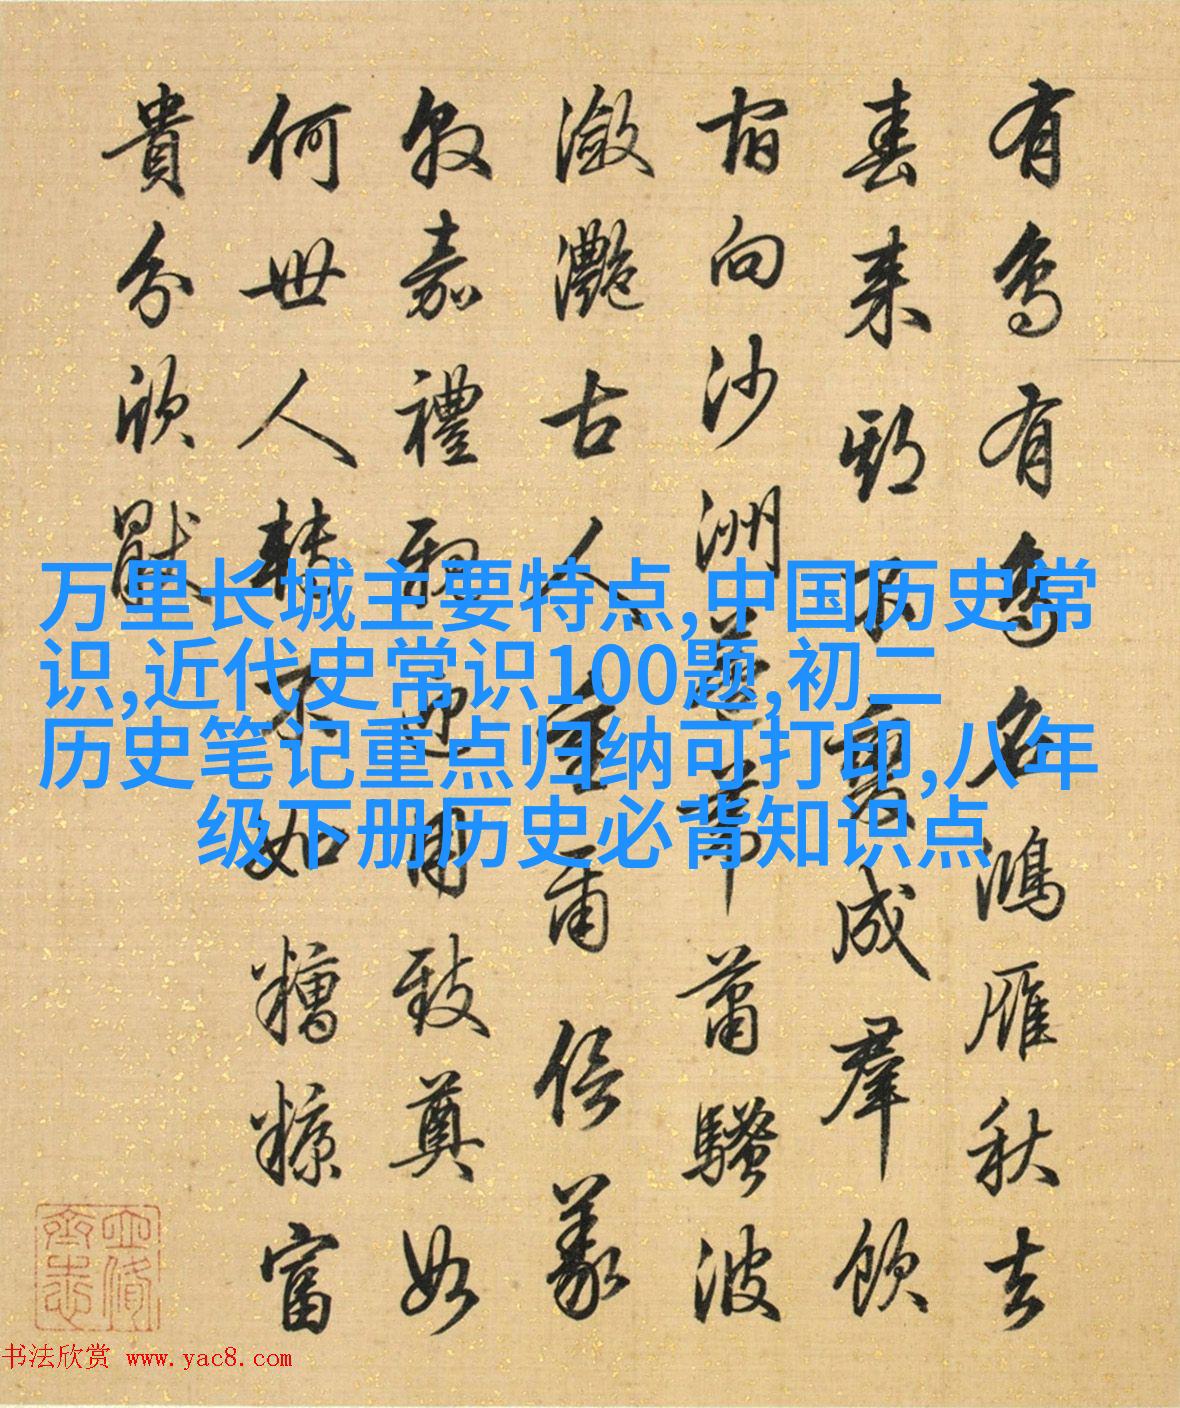 有鸟有鸟名鸿雁秋去
春来期不爽成群饮
宿向沙洲芦苇萧骚波
潋滟古人重甫信义
敦嘉礼亲迎用致奠如
何世人转不如糟糠富
贵分欣厌
万里长城主要特点,中国历史常
识,近代史常识100题,初二
历史笔记重点归纳可打印,八年
级下册历史必背知识点
书法欣赏 www.yac8.com